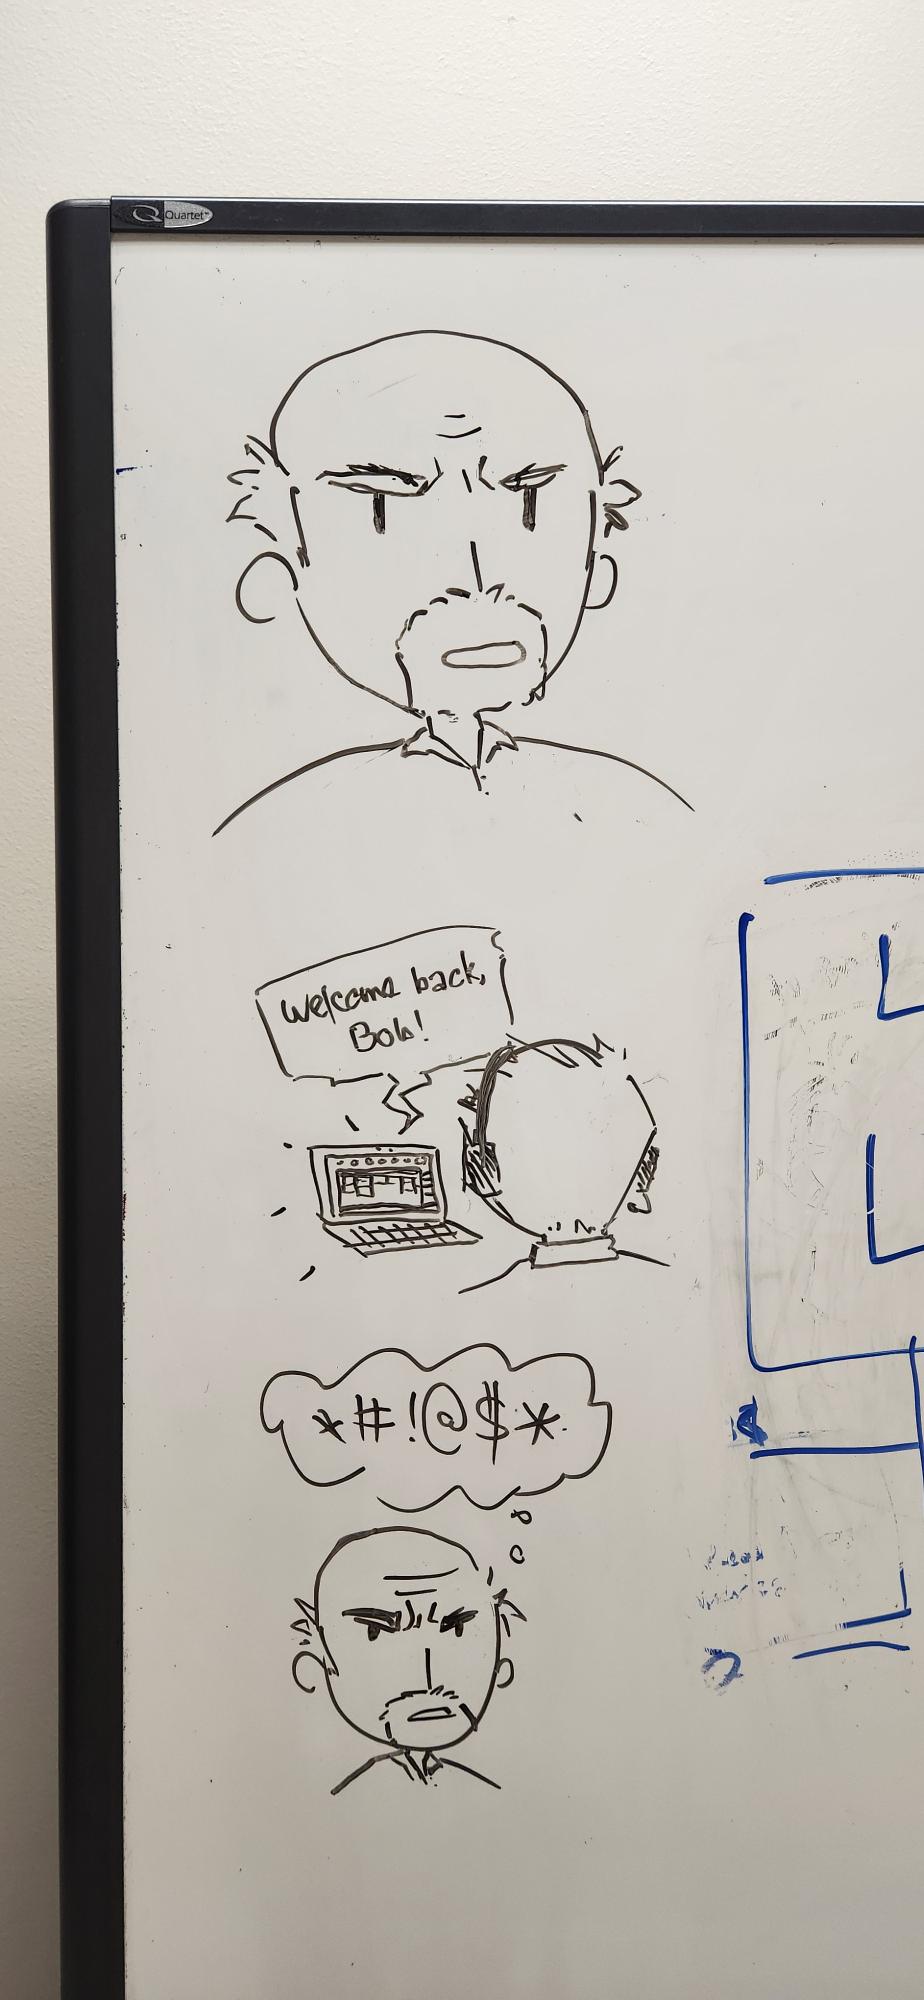 Quartet
Welcome back,
Bob!
*#!@$*